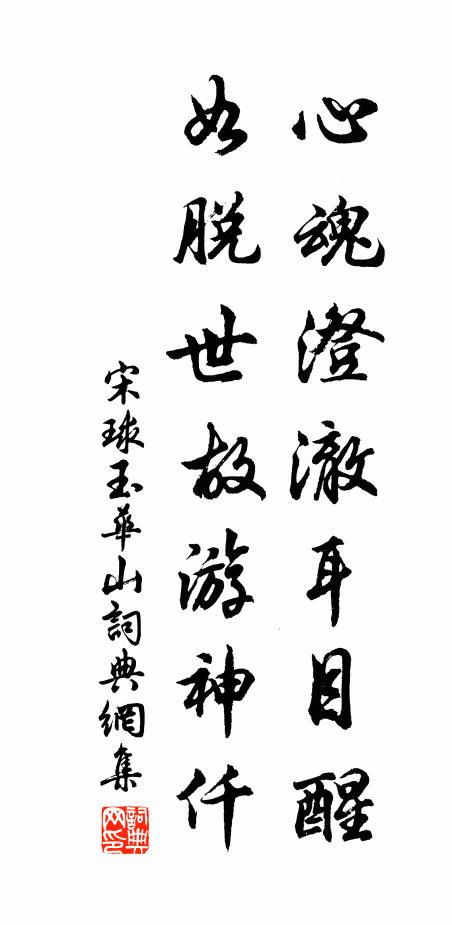 心魂澄澈耳目醒
如脱世故游神仟
宋球玉華山詞典網集
詞典网印